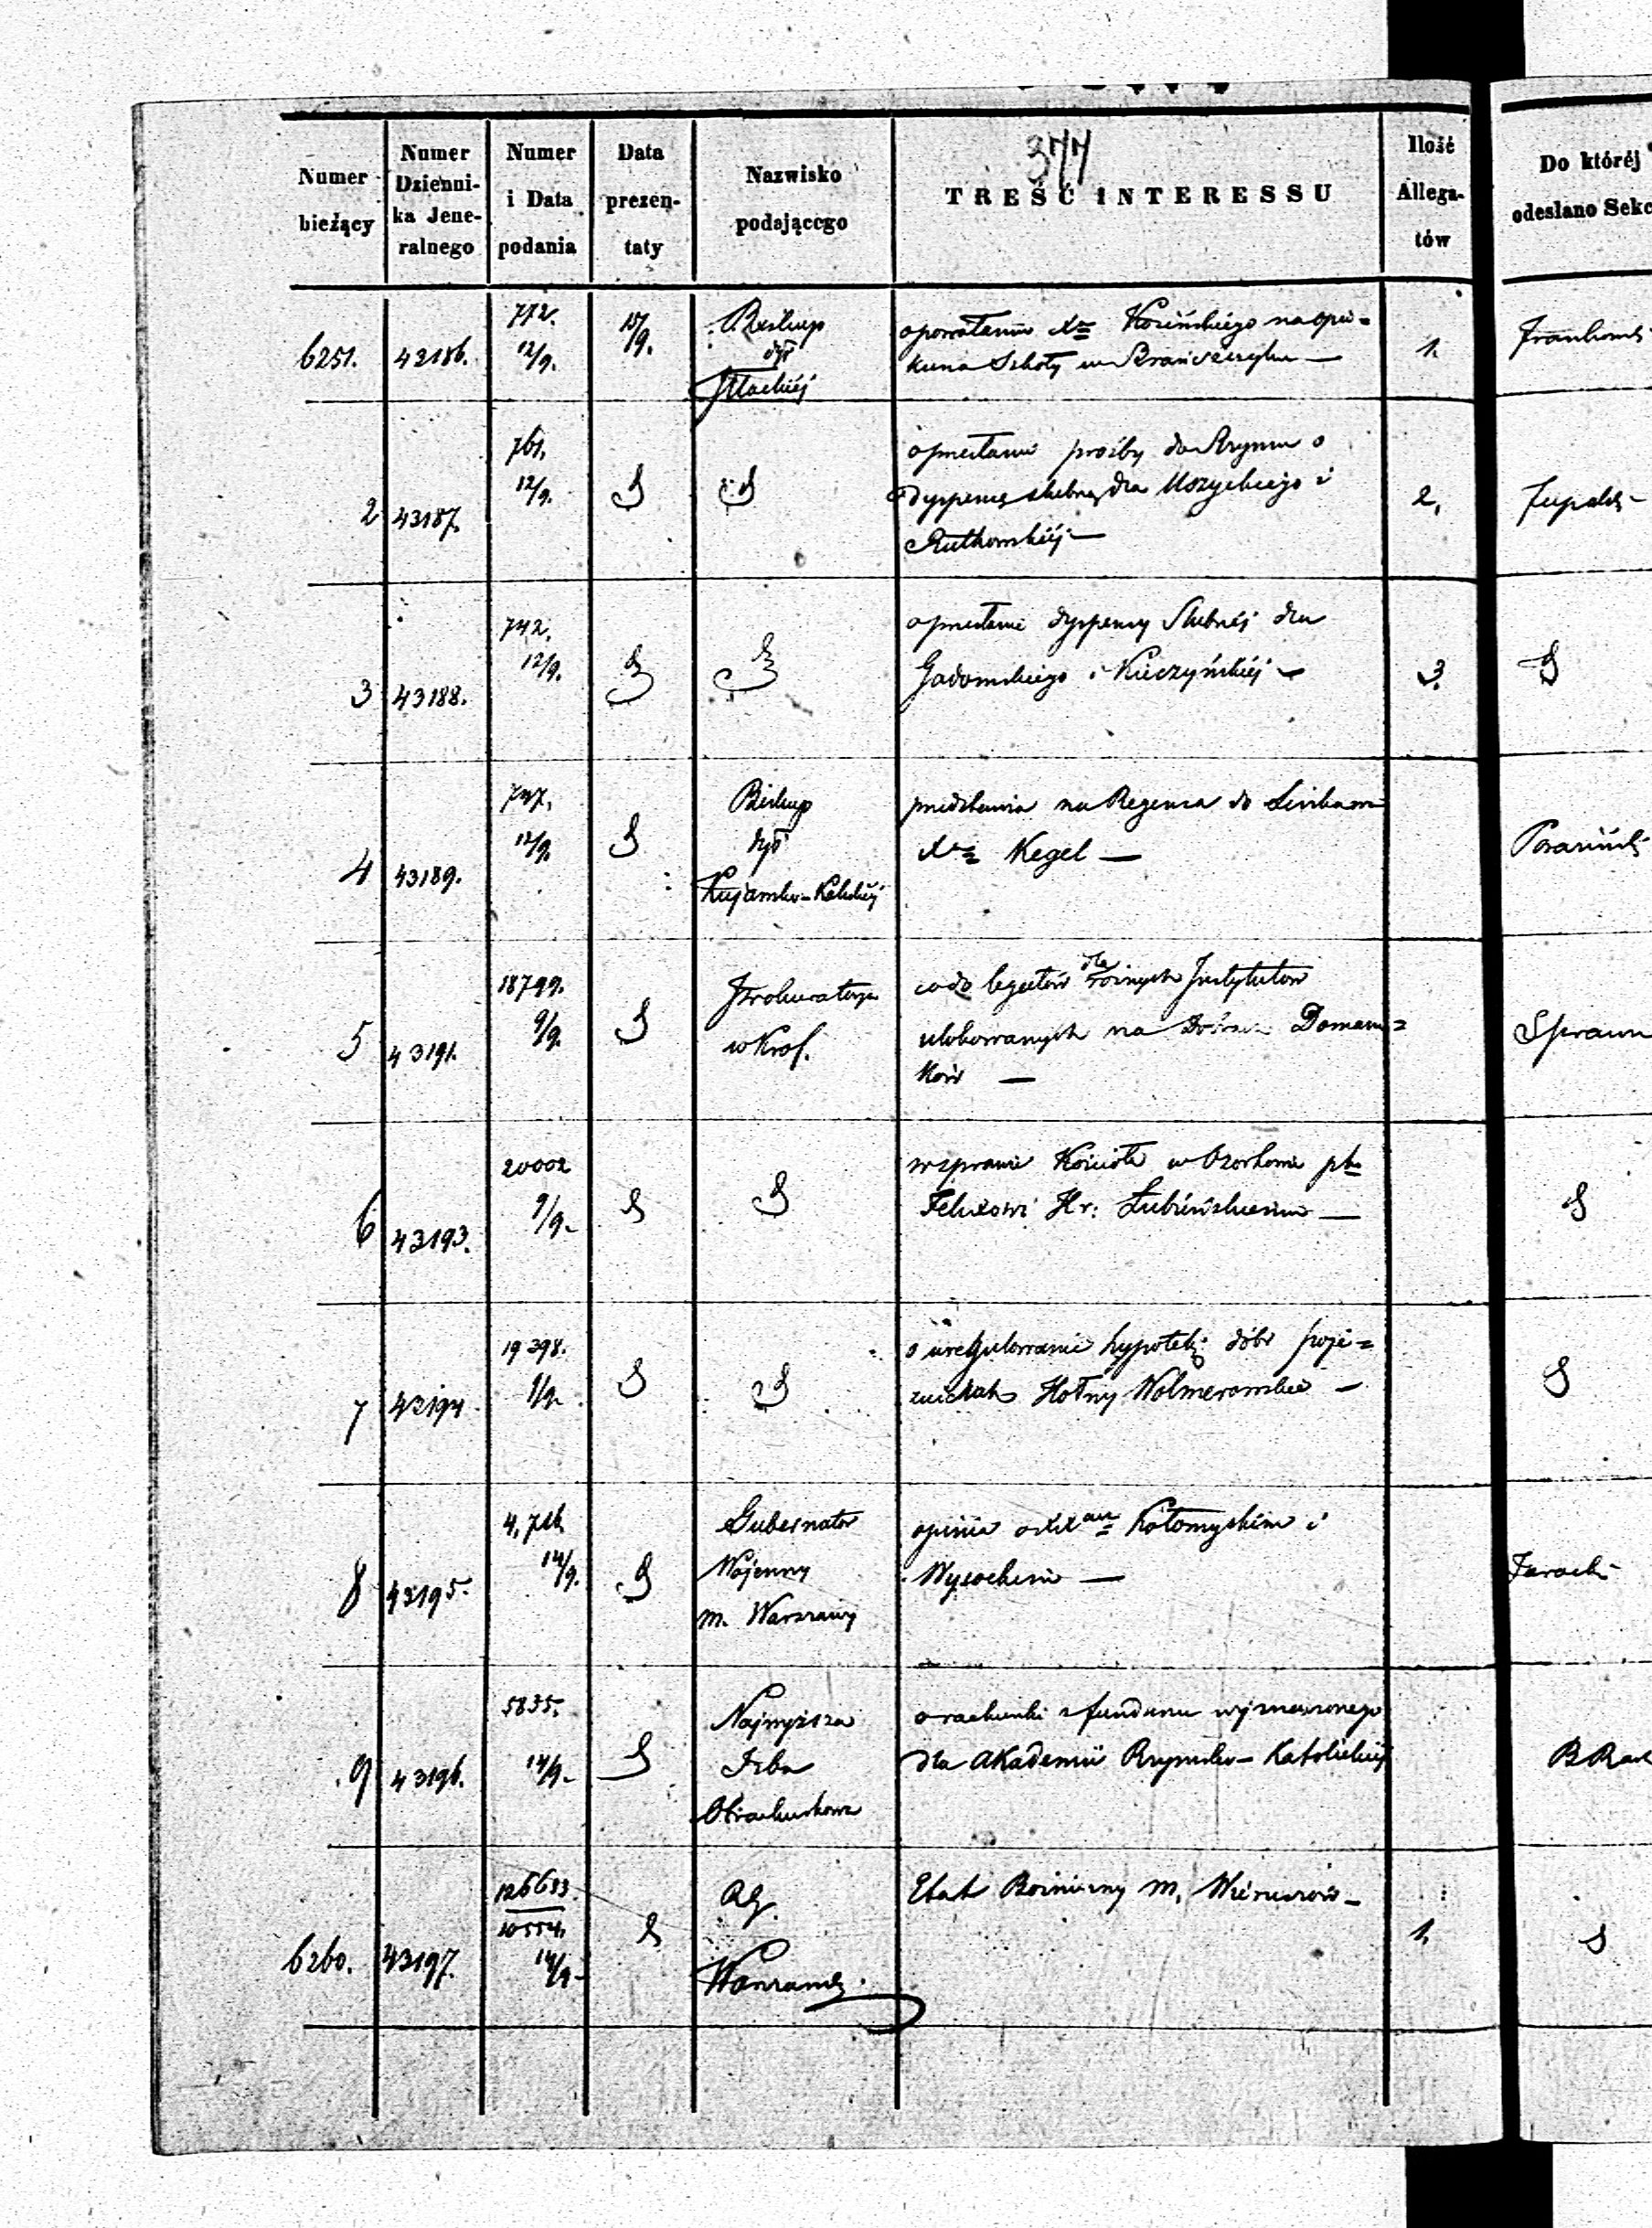 377
Numer bieżący
Numer Dzienni-ka Jene-ralnego
Numer i Data podania
Data prezen-taty
Nazwisko podającego
TREŚĆ INTERESSU
Ilość Allega-tów
Do któréj odesłano Sekc
6251. 43186. 712. 12/9. 15/9. Biskup dył Płockiéj
o powołaniu Xa Kosińskiego na opie=
kuna Szkoły w
1.
2 43187. 761. 12/9.
o przesłanie prośby do Rzymu o
dyspensę ślubną dla Uszyckiego i
Rutkowskiéj —
2.
3 43188. 742. 12/9.
o przesłanie dyspensy Slubnéj dla
Gadomskiego i Kuczyńskiéj —
3.
4 43189. 747. 12/9. Biskup
Kujawsko-Kaliskiéj
przedstawia na Regensa do
Xa Kegel —
5 43191. 18799. 9/9. Prokuratorya
w Król.
co do legatów dla różnych Instytutów
ulokowanych na dobrach Doman=
ków —
Spraw
6 43193. 20002 9/9.
w sprawie Kościoła w Ozorkowie pko
Felixowi Hr: Łubieńskiemu —
7 43194. 19398. 9/9.
o uregulowanie hypoteki dóbr poje=
zuickich Hołny Wolmerowskie —
8 43195. 14/9. Gubernator
Wojenny
m. Warszawy
opinia o XX Kołomyskim i
Wysockim —
9 43196. 5835. 14/9. Najwyższa
Izba
Obrachunkowa
o rachunki z funduszu wyznaczonego
dla Akademii Rzymsko-Katolickiéj
6260. 43197. 126633. 10554. 14/9. RG.
Warszawski
Etat Bożniczny m.
1.